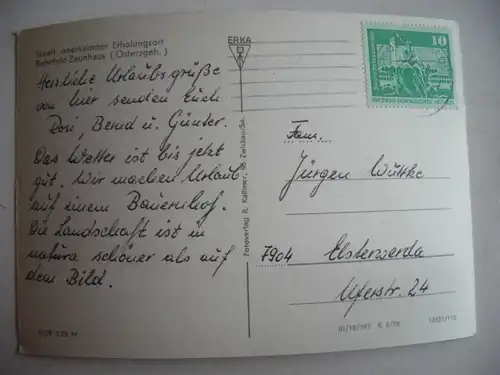 Staatl. anerkannter Erholungsort
Rehefeld-Zaunhaus (Osterzgeb.)
Herzliche Urlaubsgrüße
von hier senden Euch
Rosi, Bernd u. Günter.
Das Wetter ist bis jetzt
gut. Wir machen Urlaub
auf einem Bauernhof.
Die Landschaft ist in
natura schöner als auf
dem Bild.
ERKA
Fotoverlag R. Kallmer, 95 Zwickau/Sa.
10
Fam.
Jürgen Wuttke
7904 Elsterwerda
Uferstr. 24
III/18/197 K 2/76